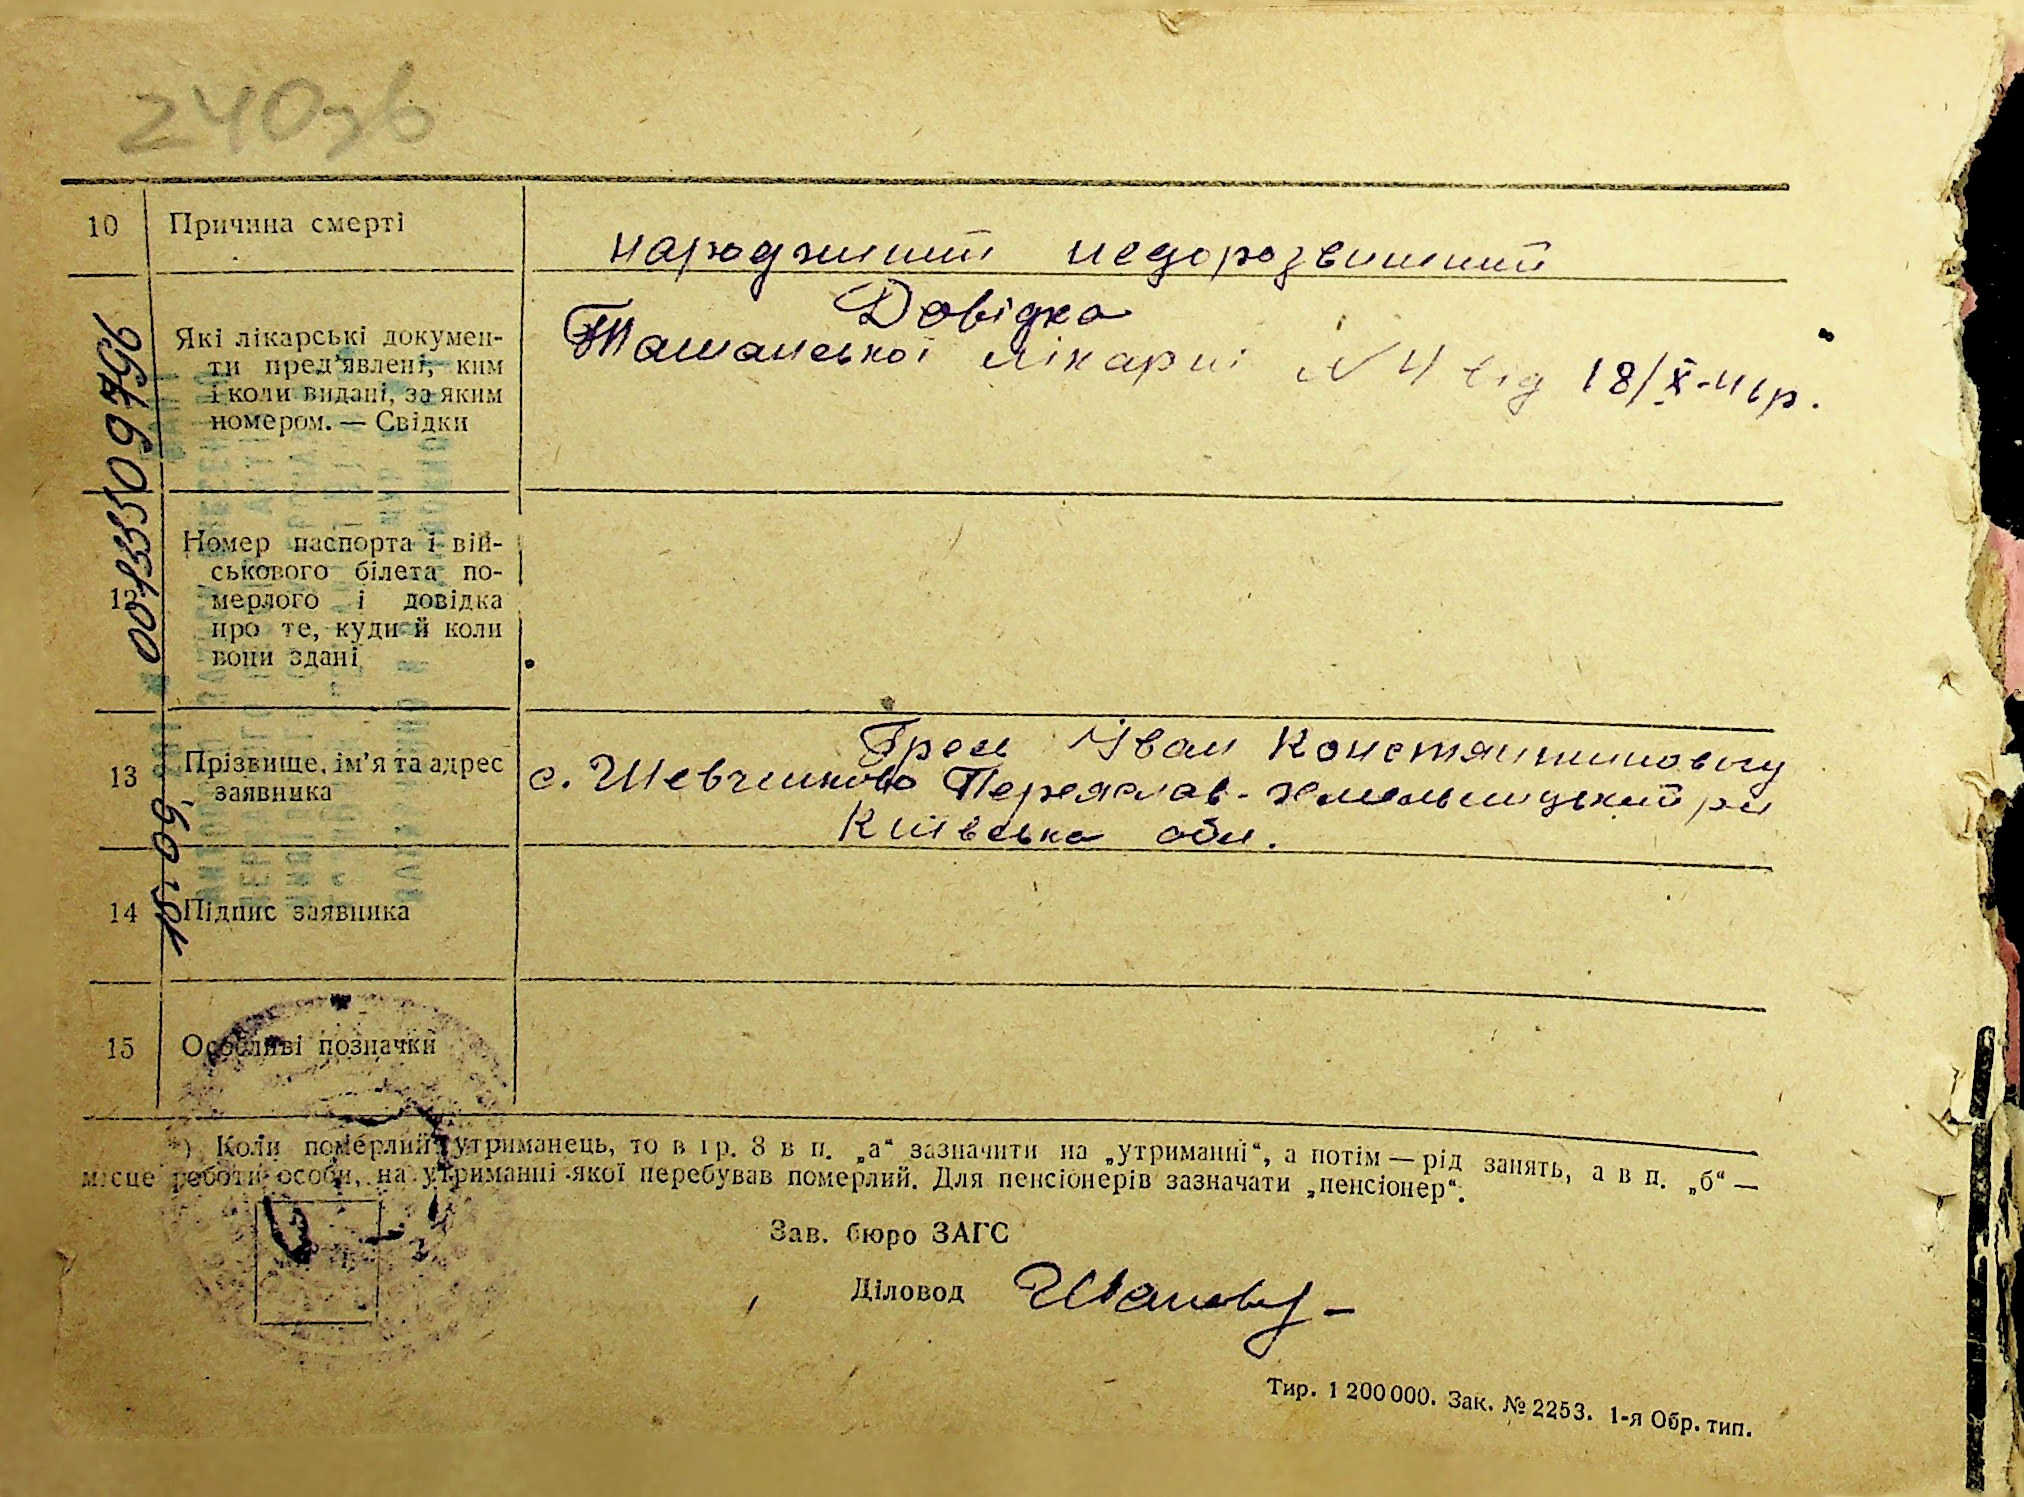 240зв
10 Причина смерті
народжений недорозвинений
Які лікарські докумен-
ти пред'явлені, ким
і коли видані, за яким
номером. — Свідки
Довідка
Ташанської лікарні N 4 від 18/X-41р.
12 Номер паспорта і вій-
ськового білета по-
мерлого і довідка
про те, куди й коли
вони здані
00133550 9796
13 Прізвище, ім'я та адрес
заявника
Грек Іван Константинович
с. Шевченково Переяслав-Хмельницький р-н
Київська обл.
14 Підпис заявника
15 Особливі позначки
*) Коли померлий утриманець, то в гр. 8 в п. „а“ зазначити на „утриманні“, а потім — рід занять, а в п. „б“ —
місце роботи особи, на утриманні якої перебував померлий. Для пенсіонерів зазначати „пенсіонер“.
Зав. бюро ЗАГС
Діловод
Тир. 1 200 000. Зак. № 2253. 1-я Обр. тип.